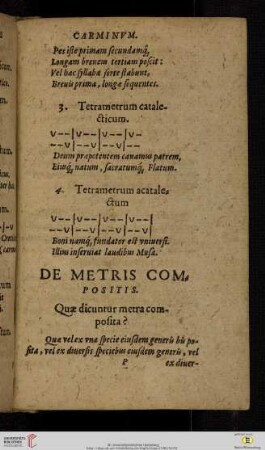 CARMINVM.
Per iste primam secundamq́,
Longam breuem tertiam poscit:
Vel hac syllaba ferre stabunt,
Breuis prima, longæ sequentes.
3. Tetrametrum catale-
cticum.
v--|v--|v--|v-
--v|--v|--v|--
Deum præpotentem canamus patrem,
Eiusq́, natum, sacratumq́, Flatum.
4. Tetrametrum acatale-
ctum
v--|v--|v--|v--|
--v|--v|--v|--v|
Boni namq́, fundator est vniuersi.
Illius inseruiat laudibus Musa.
DE METRIS COM-
POSITIS.
Quæ dicuntur metra com-
posita?
Quæ vel ex vna specie eiusdem generis bis po-
sita, vel ex diuersis speciebus eiusdem generis, vel
P ex diuer-